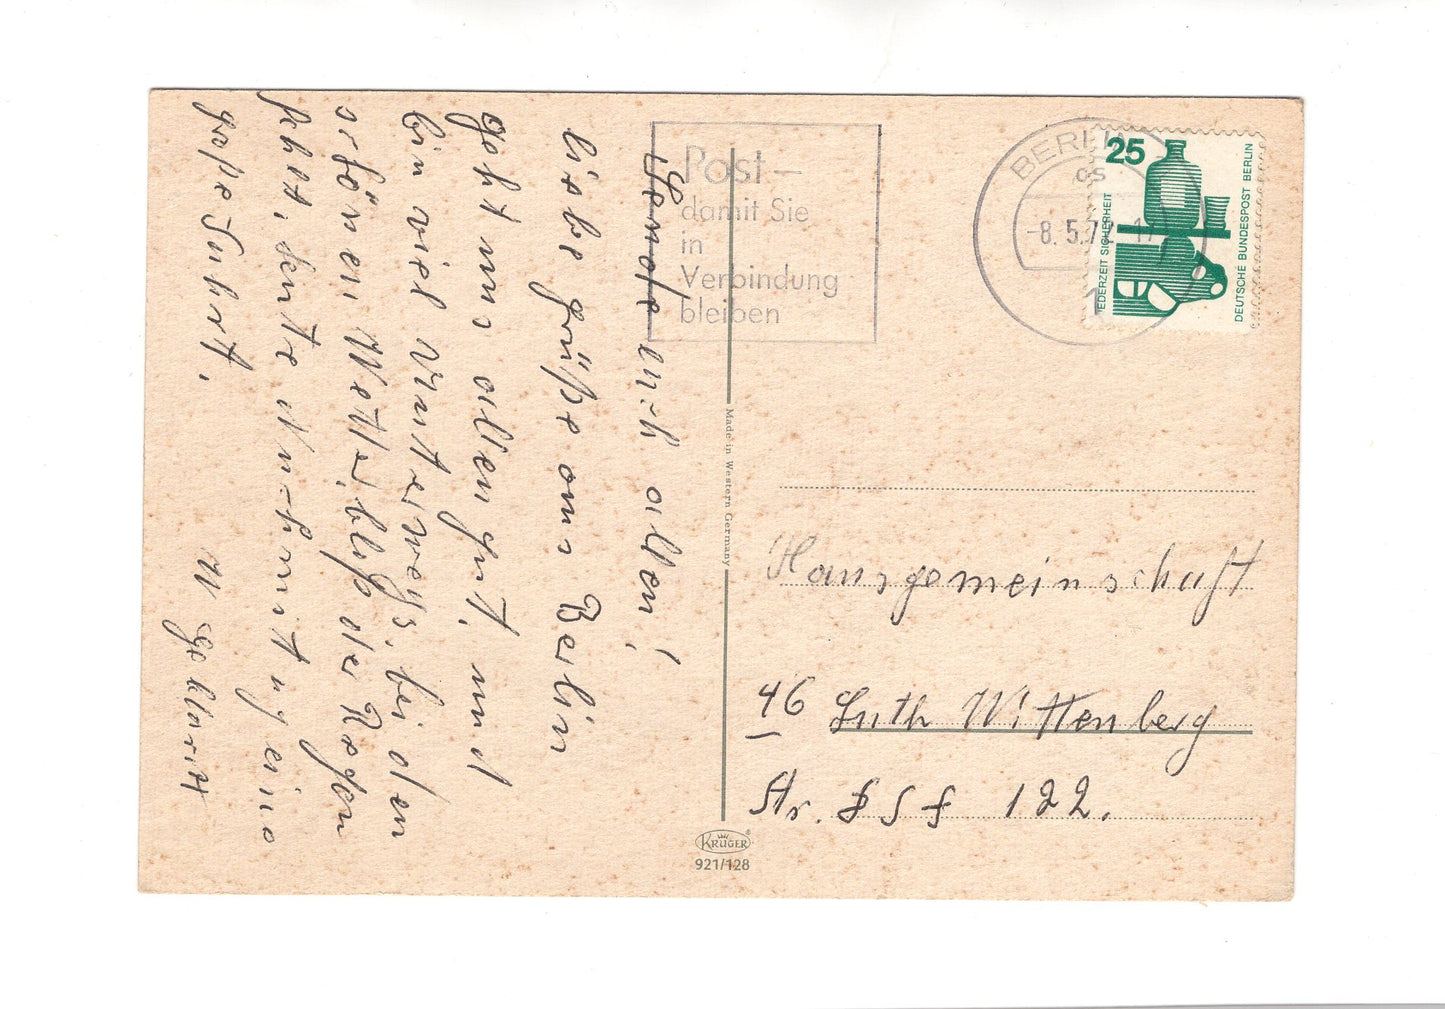 Sende euch allen!
liebe grüße aus Berlin
geht uns allen gut, und
bin viel Unterwegs, bei den
schönen Wetter, bloß der Regen
fehlt, heute Nachmittag eine
große Fahrt.
Post –
damit Sie
in
Verbindung
bleiben
BERLIN
-8.5.72-17
25
JEDERZEIT SICHERHEIT
DEUTSCHE BUNDESPOST BERLIN
Made in Western Germany
Hausgemeinschaft
46 Luth Wittenberg
Str. DSF 122.
KRÜGER
921/128